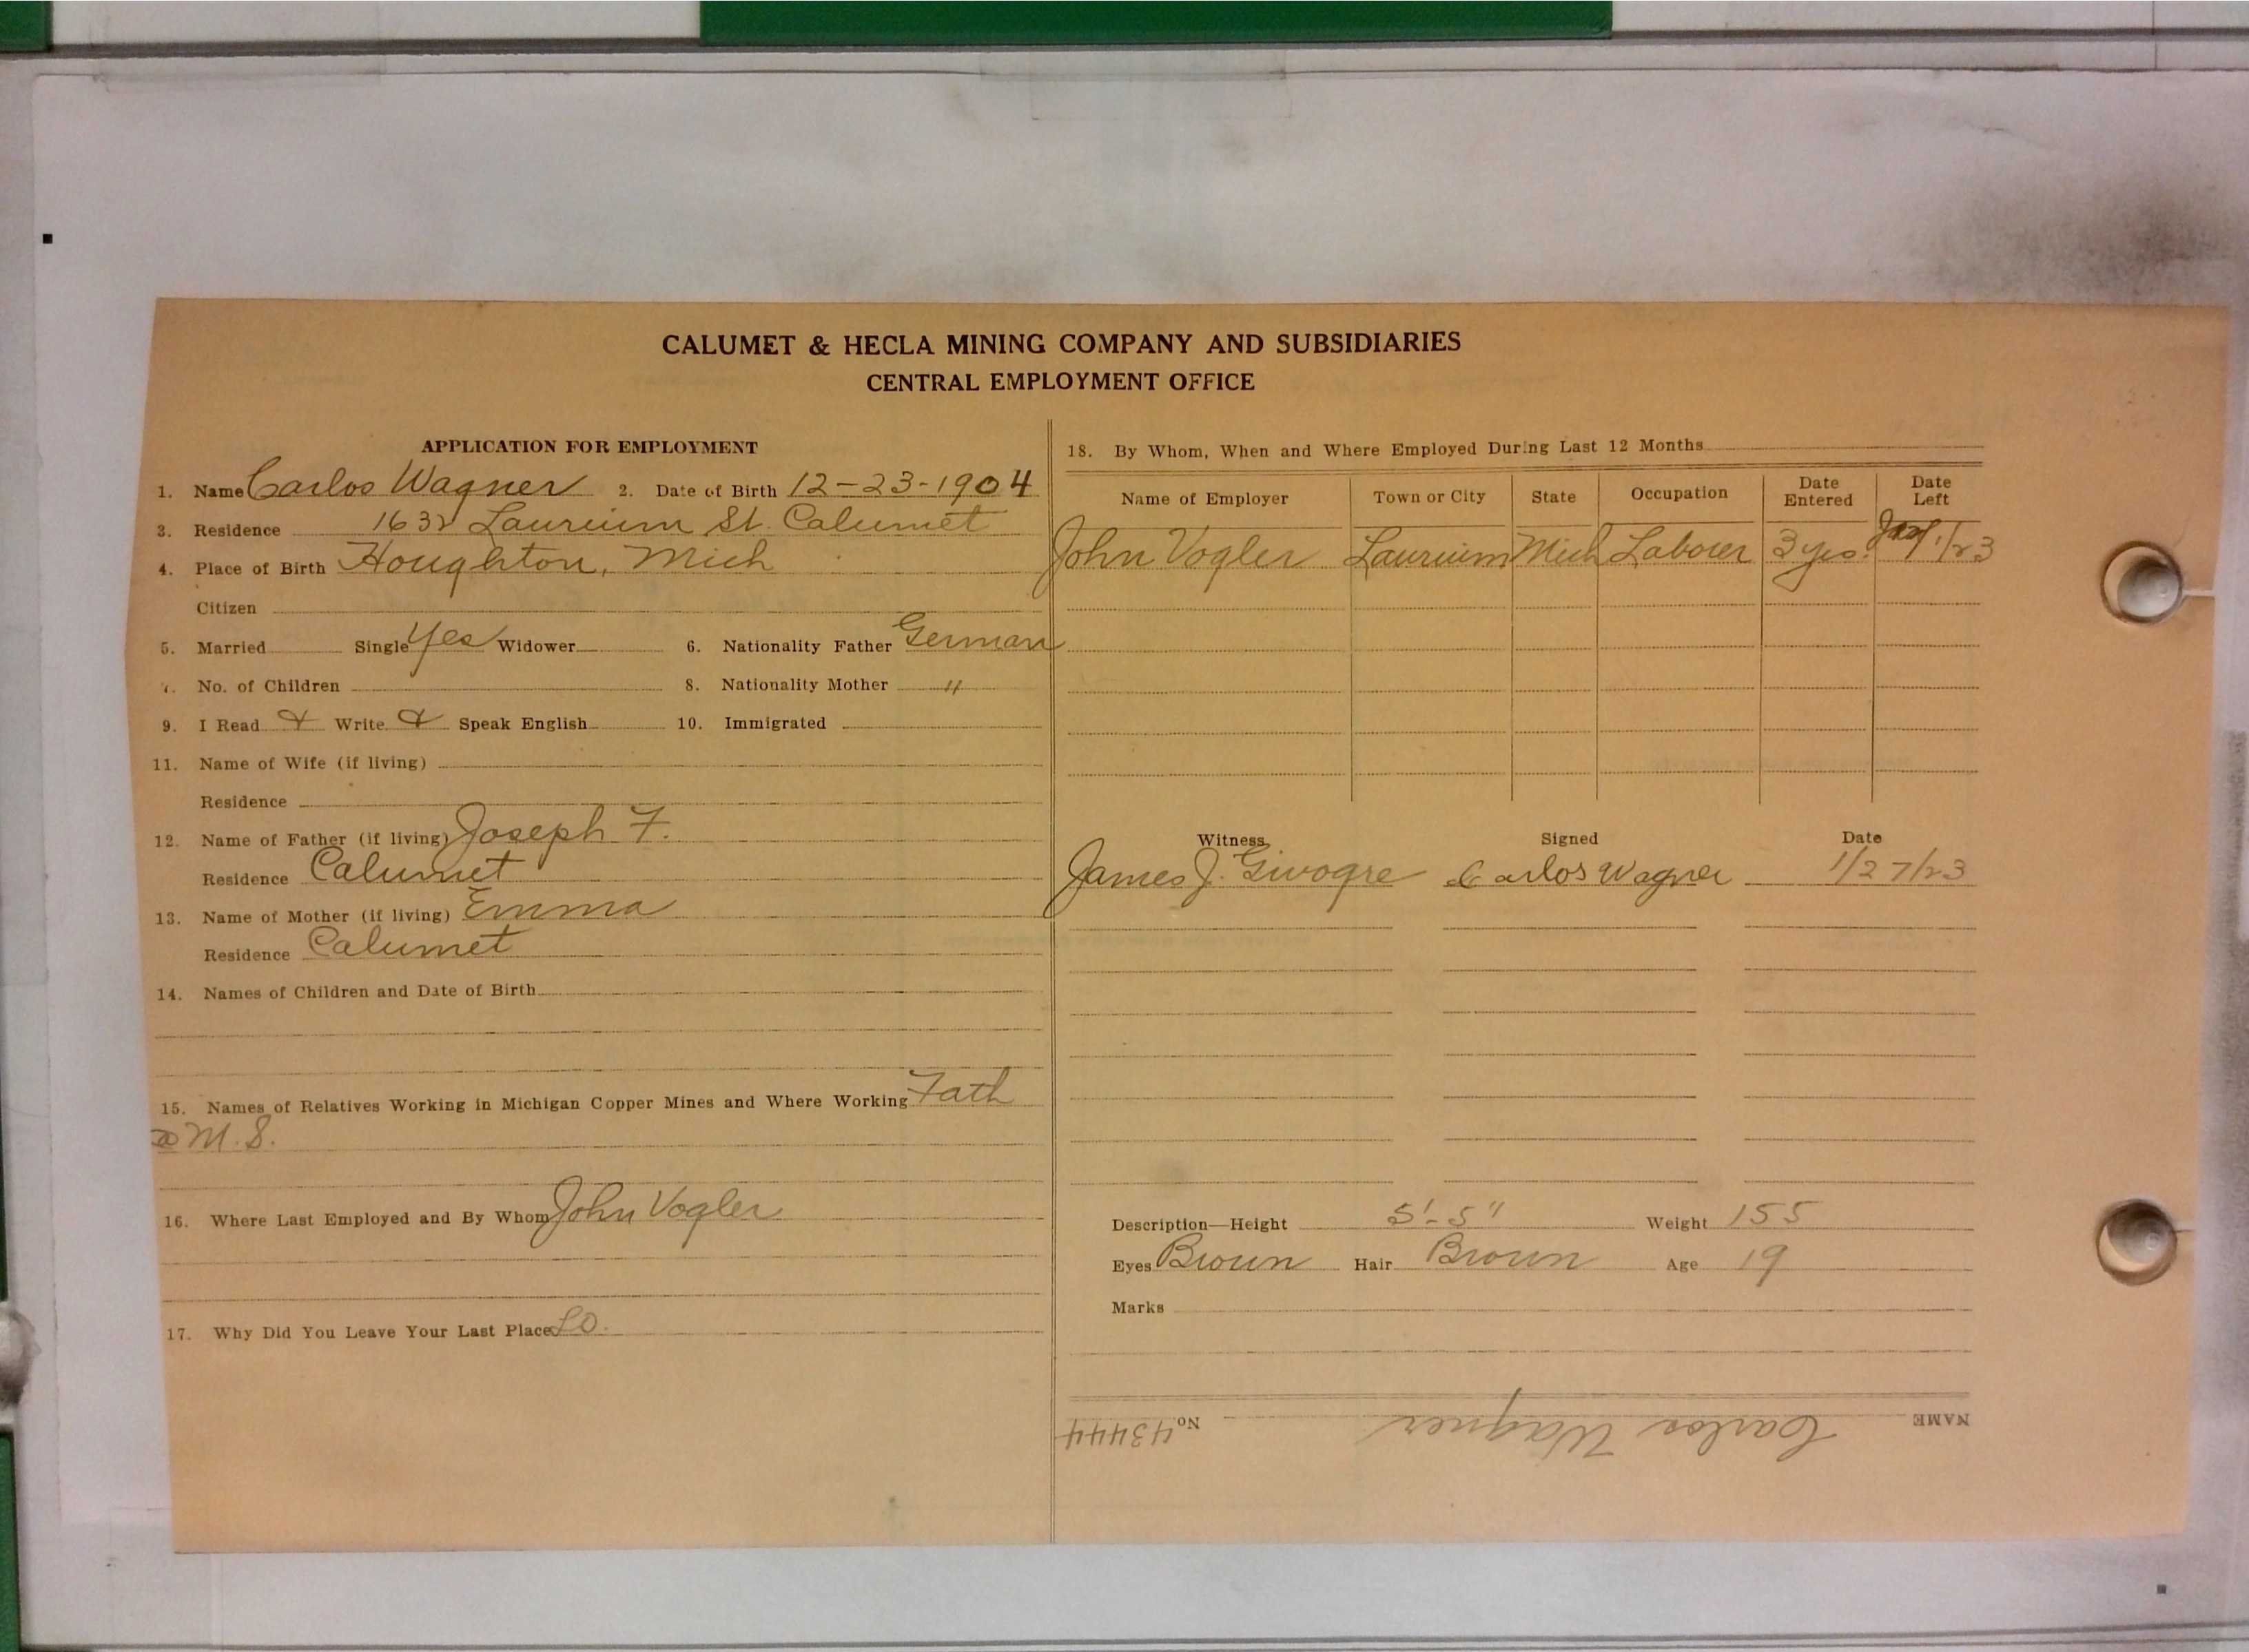 CALUMET & HECLA MINING COMPANY AND SUBSIDIARIES
CENTRAL EMPLOYMENT OFFICE
APPLICATION FOR EMPLOYMENT
1. Name Carlos Wagner 2. Date of Birth 12-23-1904
3. Residence 1632 Laurium St. Calumet
4. Place of Birth Houghton, Mich
Citizen
5. Married Single Yes Widower 6. Nationality Father German
7. No. of Children 8. Nationality Mother "
9. I Read & Write & Speak English 10. Immigrated
11. Name of Wife (if living)
Residence
12. Name of Father (if living) Joseph F.
Residence Calumet
13. Name of Mother (if living) Emma
Residence Calumet
14. Names of Children and Date of Birth
15. Names of Relatives Working in Michigan Copper Mines and Where Working Fath
M. S.
16. Where Last Employed and By Whom John Vogler
17. Why Did You Leave Your Last Place LO.
18. By Whom, When and Where Employed During Last 12 Months
Name of Employer Town or City State Occupation Date Entered Date Left
John Vogler Laurium Mich Laborer 3 yrs. 1/23
Witness Signed Date
James J. Givogre Carlos Wagner 1/27/23
Description—Height 5'-5" Weight 155
Eyes Brown Hair Brown Age 19
Marks
NAME Carlos Wagner No 43444